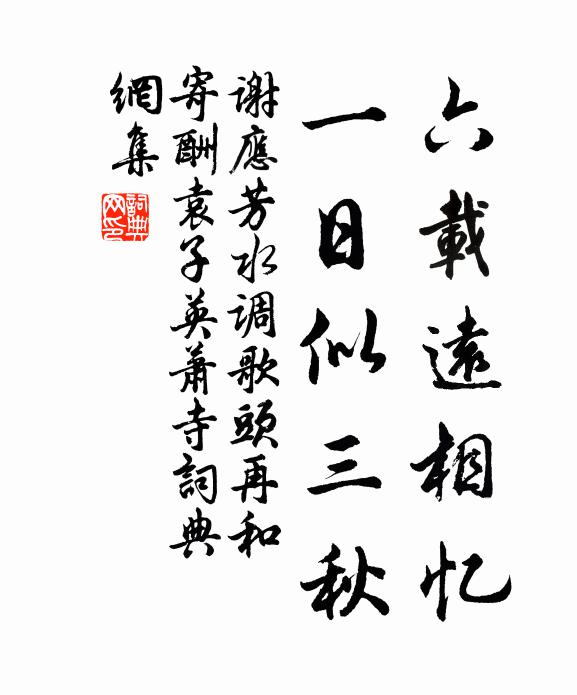 六載遠相忆
一日似三秋
谢應芳水调歌頭再和
寄酬袁子英蕭寺詞典
網集
詞典网印